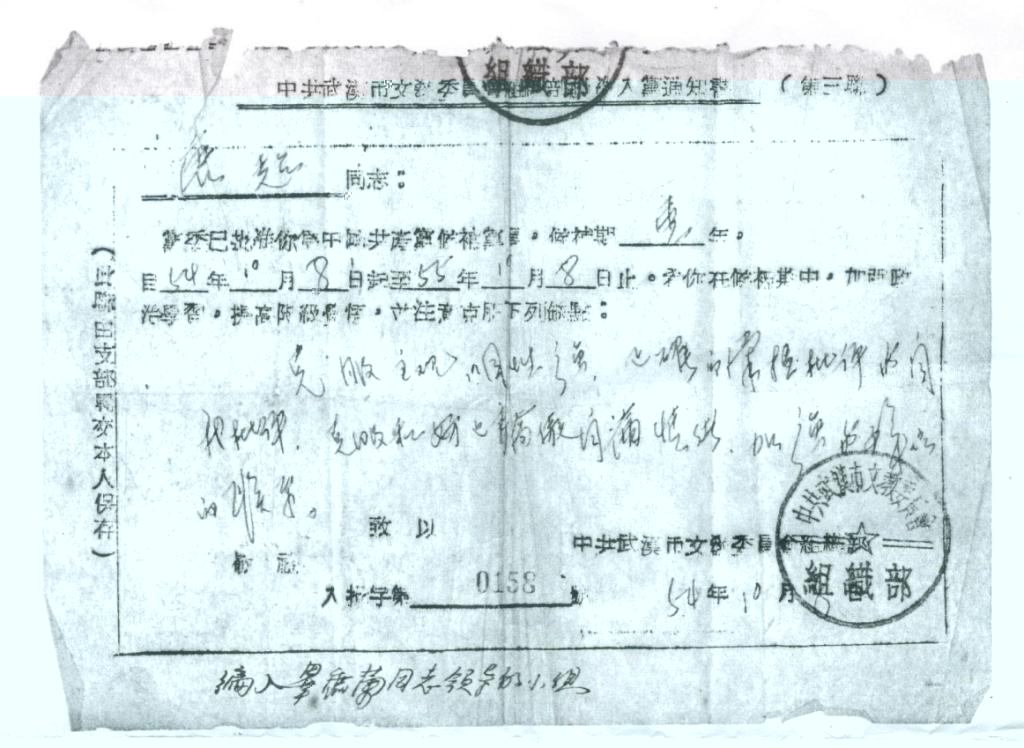 組織部
中共武漢市文教委員會組織部 入黨通知書 (第三聯)
超 同志：
黨委已批准你為中國共產黨候補黨員，候補期 壹 年。
自 54 年 10 月 8 日起至 55 年 10 月 8 日止。希你在候補期中，加强政
治學習，提高階級覺悟，並注意克服下列缺點：
克服主观 性强，正確的掌握批评与自
我批评，克服 骄傲自满情绪，加强
的联系。
致以
敬礼
中共武漢市文教委員會組織部
入批字第 0158 號
54 年 10 月 8
中共武漢市文教委員會
組織部
(此聯由支部轉交本人保存)
编入 同志领导的小组